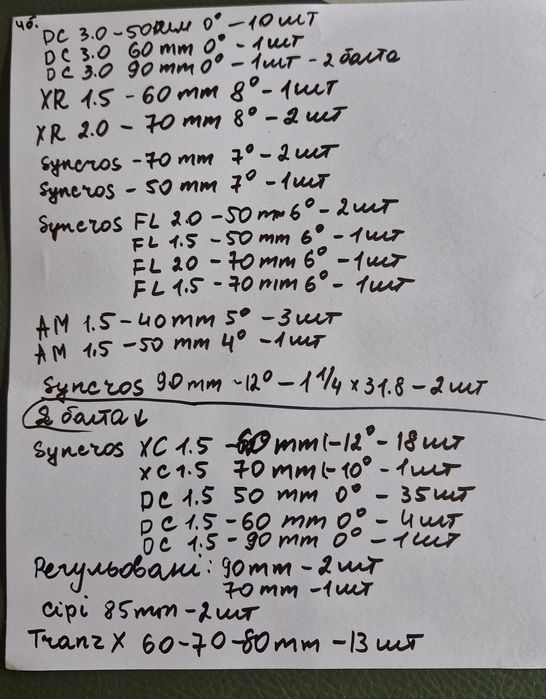 чб.
DC 3.0 - 50мм 0° - 10 шт
DC 3.0 60 mm 0° - 1 шт
DC 3.0 90 mm 0° - 1 шт - 2 балта
XR 1.5 - 60 mm 8° - 1 шт
XR 2.0 - 70 mm 8° - 2 шт
Syncros - 70 mm 7° - 2 шт
Syncros - 50 mm 7° - 1 шт
Syncros FL 2.0 - 50 mm 6° - 2 шт
FL 1.5 - 50 mm 6° - 1 шт
FL 20 - 70 mm 6° - 1 шт
FL 1.5 - 70 mm 6° - 1 шт
AM 1.5 - 40 mm 5° - 3 шт
AM 1.5 - 50 mm 4° - 1 шт
Syncros 90 mm -12° - 1 1/4 x 31.8 - 2 шт
2 балта ↓
Syncros XC 1.5 - mm (-12° - 18 шт
XC 1.5 70 mm (-10° - 1 шт
DC 1.5 50 mm 0° - 35 шт
DC 1.5 - 60 mm 0° - 4 шт
DC 1.5 - 90 mm 0° - 1 шт
Регульовані: 90 mm - 2 шт
70 mm - 1 шт
сірі 85 mm - 2 шт
Tranz X 60-70-80 mm - 13 шт